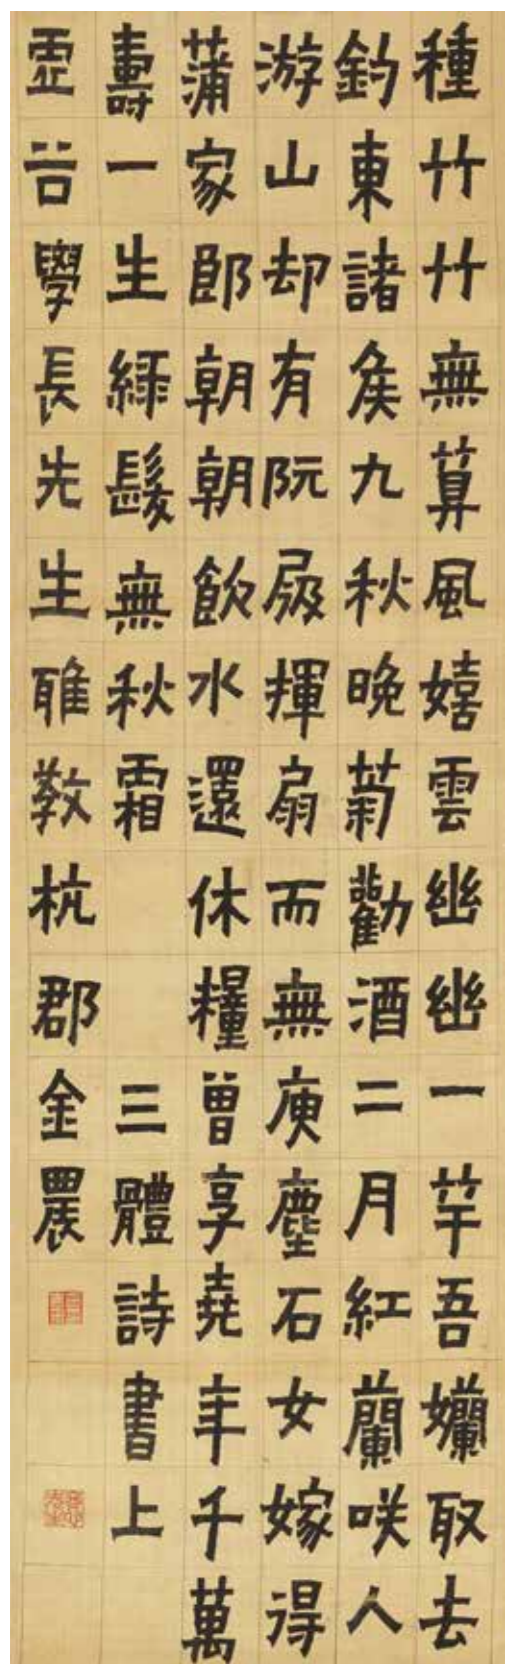 種竹竹無算風嬉雲幽幽一竿吾孏取去
釣東諸矦九秋晚菊勸酒二月紅蘭咲人
游山却有阮屐揮扇而無庾塵石女嫁得
蒲家郎朝朝飲水還休糧曾享堯年千萬
壽一生綠髮無秋霜 三體詩書上
雲谷學長先生雅教杭郡金農